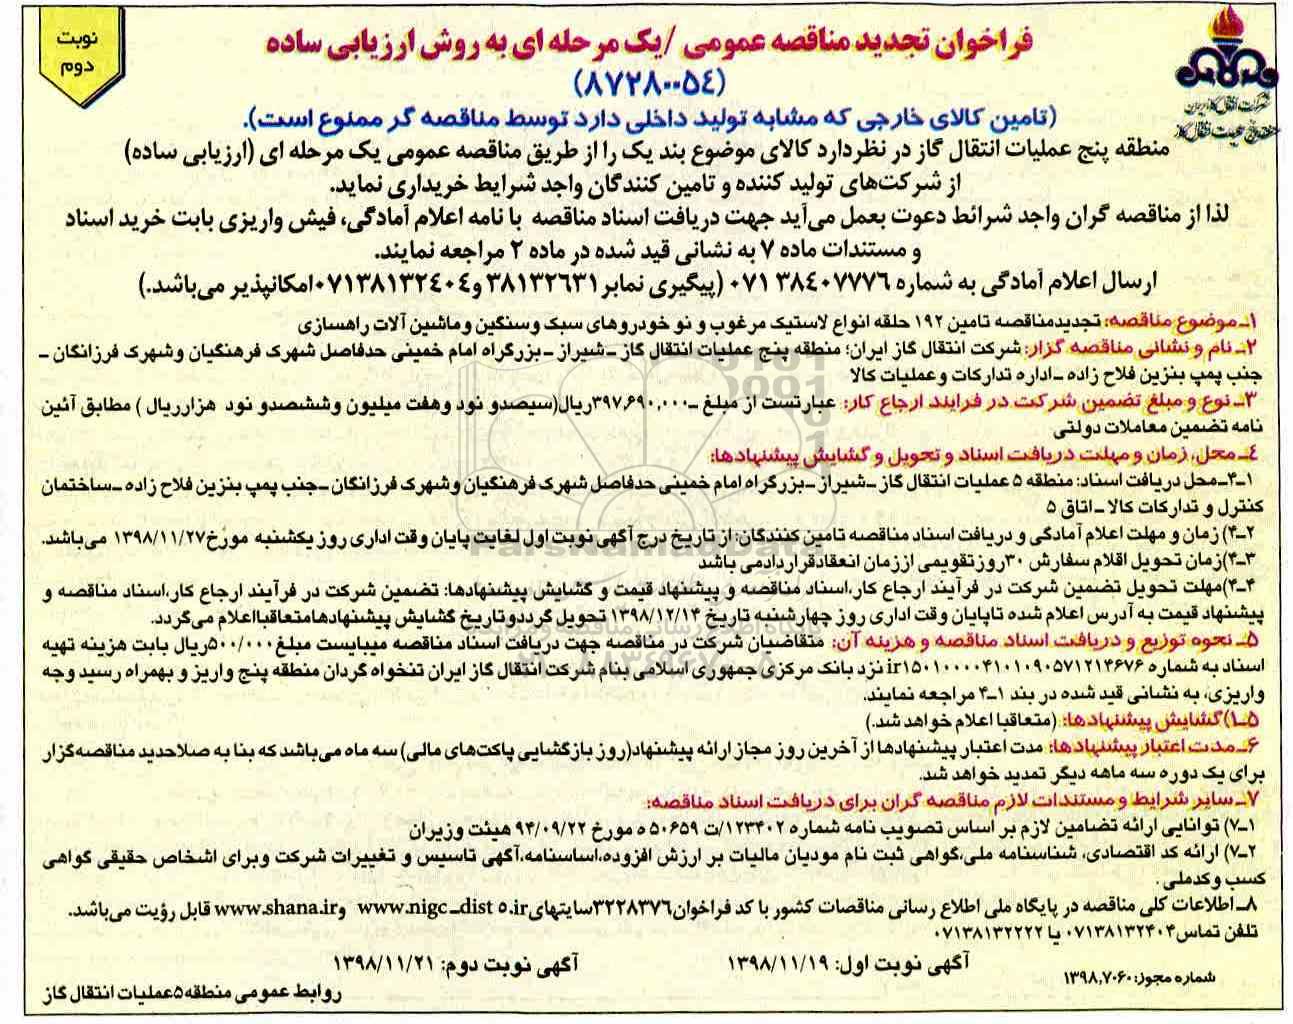 نوبت
دوم
فراخوان تجدید مناقصه عمومی /یک مرحله ای به روش ارزیابی ساده
(۸۷۲۸۰۰۵۴)
(تامین کالای خارجی که مشابه تولید داخلی دارد توسط مناقصه گر ممنوع است).
شرکت انتقال گاز ایران
منطقه پنج عملیات انتقال گاز
منطقه پنج عملیات انتقال گاز در نظردارد کالای موضوع بند یک را از طریق مناقصه عمومی یک مرحله ای (ارزیابی ساده)
از شرکت‌های تولید کننده و تامین کنندگان واجد شرایط خریداری نماید.
لذا از مناقصه گران واجد شرائط دعوت بعمل می‌آید جهت دریافت اسناد مناقصه با نامه اعلام آمادگی، فیش واریزی بابت خرید اسناد
و مستندات ماده ۷ به نشانی قید شده در ماده ۲ مراجعه نمایند.
ارسال اعلام آمادگی به شماره ۳۸۴۰۷۷۷۶ ۰۷۱ (پیگیری نمابر ۳۸۱۳۲۶۳۱ و۰۷۱۳۸۱۳۲۴۰۴امکانپذیر می‌باشد.)
۱ـ موضوع مناقصه: تجدیدمناقصه تامین ۱۹۲ حلقه انواع لاستیک مرغوب و نو خودروهای سبک وسنگین وماشین آلات راهسازی
۲ـ نام و نشانی مناقصه گزار: شرکت انتقال گاز ایران؛ منطقه پنج عملیات انتقال گاز ـ شیراز ـ بزرگراه امام خمینی حدفاصل شهرک فرهنگیان وشهرک فرزانگان ـ
جنب پمپ بنزین فلاح زاده ـ اداره تدارکات وعملیات کالا
۳ـ نوع و مبلغ تضمین شرکت در فرایند ارجاع کار: عبارتست از مبلغ ـ۳۹۷,۶۹۰,۰۰۰ریال(سیصدو نود وهفت میلیون وششصدو نود هزارریال ) مطابق آئین
نامه تضمین معاملات دولتی
۴ـ محل، زمان و مهلت دریافت اسناد و تحویل و گشایش پیشنهادها:
۴ـ۱ـ محل دریافت اسناد: منطقه ۵ عملیات انتقال گاز ـ شیراز ـ بزرگراه امام خمینی حدفاصل شهرک فرهنگیان وشهرک فرزانگان ـ جنب پمپ بنزین فلاح زاده ـ ساختمان
کنترل و تدارکات کالا ـ اتاق ۵
۴ـ۲) زمان و مهلت اعلام آمادگی و دریافت اسناد مناقصه تامین کنندگان: از تاریخ درج آگهی نوبت اول لغایت پایان وقت اداری روز یکشنبه مورخ۱۳۹۸/۱۱/۲۷ می‌باشد.
۴ـ۳)زمان تحویل اقلام سفارش ۳۰روزتقویمی اززمان انعقادقراردادمی باشد
۴ـ۴)مهلت تحویل تضمین شرکت در فرآیند ارجاع کار،اسناد مناقصه و پیشنهاد قیمت و گشایش پیشنهادها: تضمین شرکت در فرآیند ارجاع کار،اسناد مناقصه و
پیشنهاد قیمت به آدرس اعلام شده تاپایان وقت اداری روز چهارشنبه تاریخ ۱۳۹۸/۱۲/۱۴ تحویل گرددوتاریخ گشایش پیشنهادهامتعاقبااعلام می‌گردد.
۵ـ نحوه توزیع و دریافت اسناد مناقصه و هزینه آن: متقاضیان شرکت در مناقصه جهت دریافت اسناد مناقصه میبایست مبلغ۵۰۰/۰۰۰ریال بابت هزینه تهیه
اسناد به شماره ir۱۵۰۱۰۰۰۰۴۱۰۱۰۹۰۵۷۱۲۱۴۶۷۶ نزد بانک مرکزی جمهوری اسلامی بنام شرکت انتقال گاز ایران تنخواه گردان منطقه پنج واریز و بهمراه رسید وجه
واریزی، به نشانی قید شده در بند ۴ـ۱ مراجعه نمایند.
۵ـ۱)گشایش پیشنهادها: (متعاقبا اعلام خواهد شد.)
۶ـ مدت اعتبار پیشنهادها: مدت اعتبار پیشنهادها از آخرین روز مجاز ارائه پیشنهاد(روز بازگشایی پاکت‌های مالی) سه ماه می‌باشد که بنا به صلاحدید مناقصه‌گزار
برای یک دوره سه ماهه دیگر تمدید خواهد شد.
۷ـ سایر شرایط و مستندات لازم مناقصه گران برای دریافت اسناد مناقصه:
۷ـ۱) توانایی ارائه تضامین لازم بر اساس تصویب نامه شماره ۱۲۳۴۰۲/ت ۵۰۶۵۹ ه مورخ ۹۴/۰۹/۲۲ هیئت وزیران
۷ـ۲) ارائه کد اقتصادی، شناسنامه ملی،گواهی ثبت نام مودیان مالیات بر ارزش افزوده،اساسنامه،آگهی تاسیس و تغییرات شرکت وبرای اشخاص حقیقی گواهی
کسب وکدملی .
۸ـ اطلاعات کلی مناقصه در پایگاه ملی اطلاع رسانی مناقصات کشور با کد فراخوان۳۲۲۸۳۷۶سایتهایwww.nigc_dist ۵.ir وwww.shana.ir قابل رؤیت می‌باشد.
تلفن تماس۰۷۱۳۸۱۳۲۴۰۴ یا ۰۷۱۳۸۱۳۲۲۲۲
آگهی نوبت اول: ۱۳۹۸/۱۱/۱۹ آگهی نوبت دوم: ۱۳۹۸/۱۱/۲۱
شماره مجوز:۱۳۹۸,۷۰۶۰
روابط عمومی منطقه۵عملیات انتقال گاز
ParsNamadData